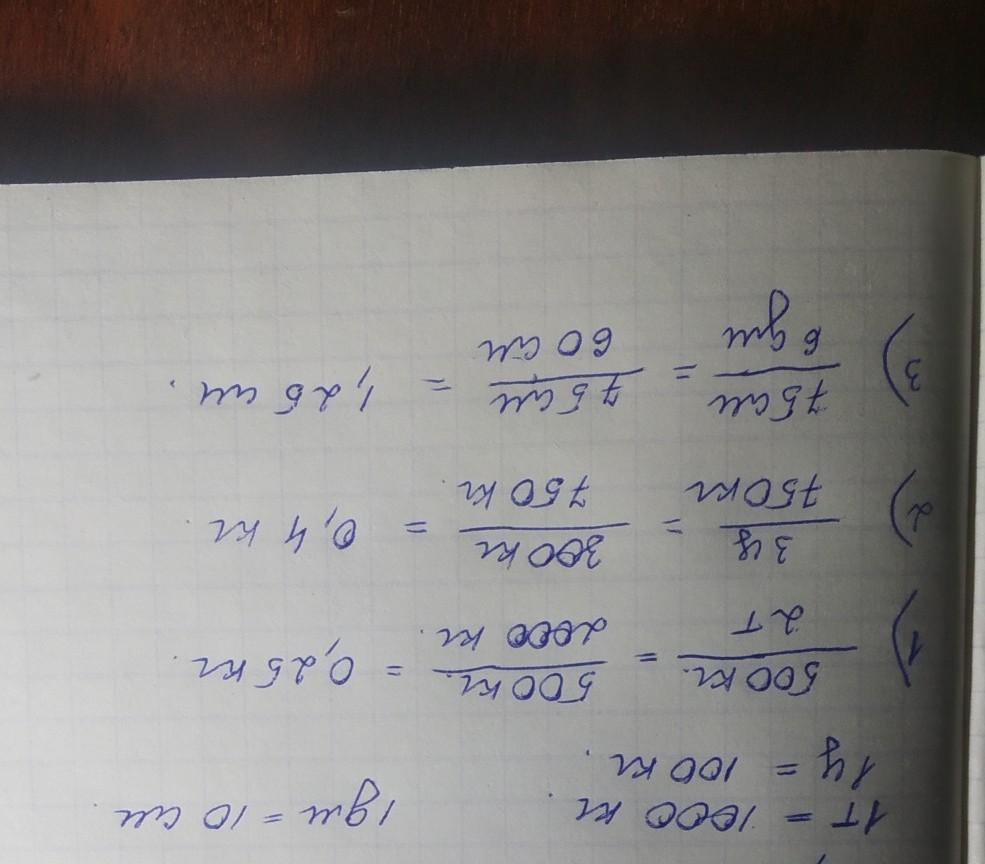 1т = 1000 кг. 1дм = 10 см.
1ц = 100 кг.
1) 500кг. / 2т = 500кг. / 2000 кг. = 0,25кг.
2) 3ц / 750кг = 300кг / 750кг. = 0,4 кг.
3) 75см / 6дм = 75см / 60 см = 1,25 см.